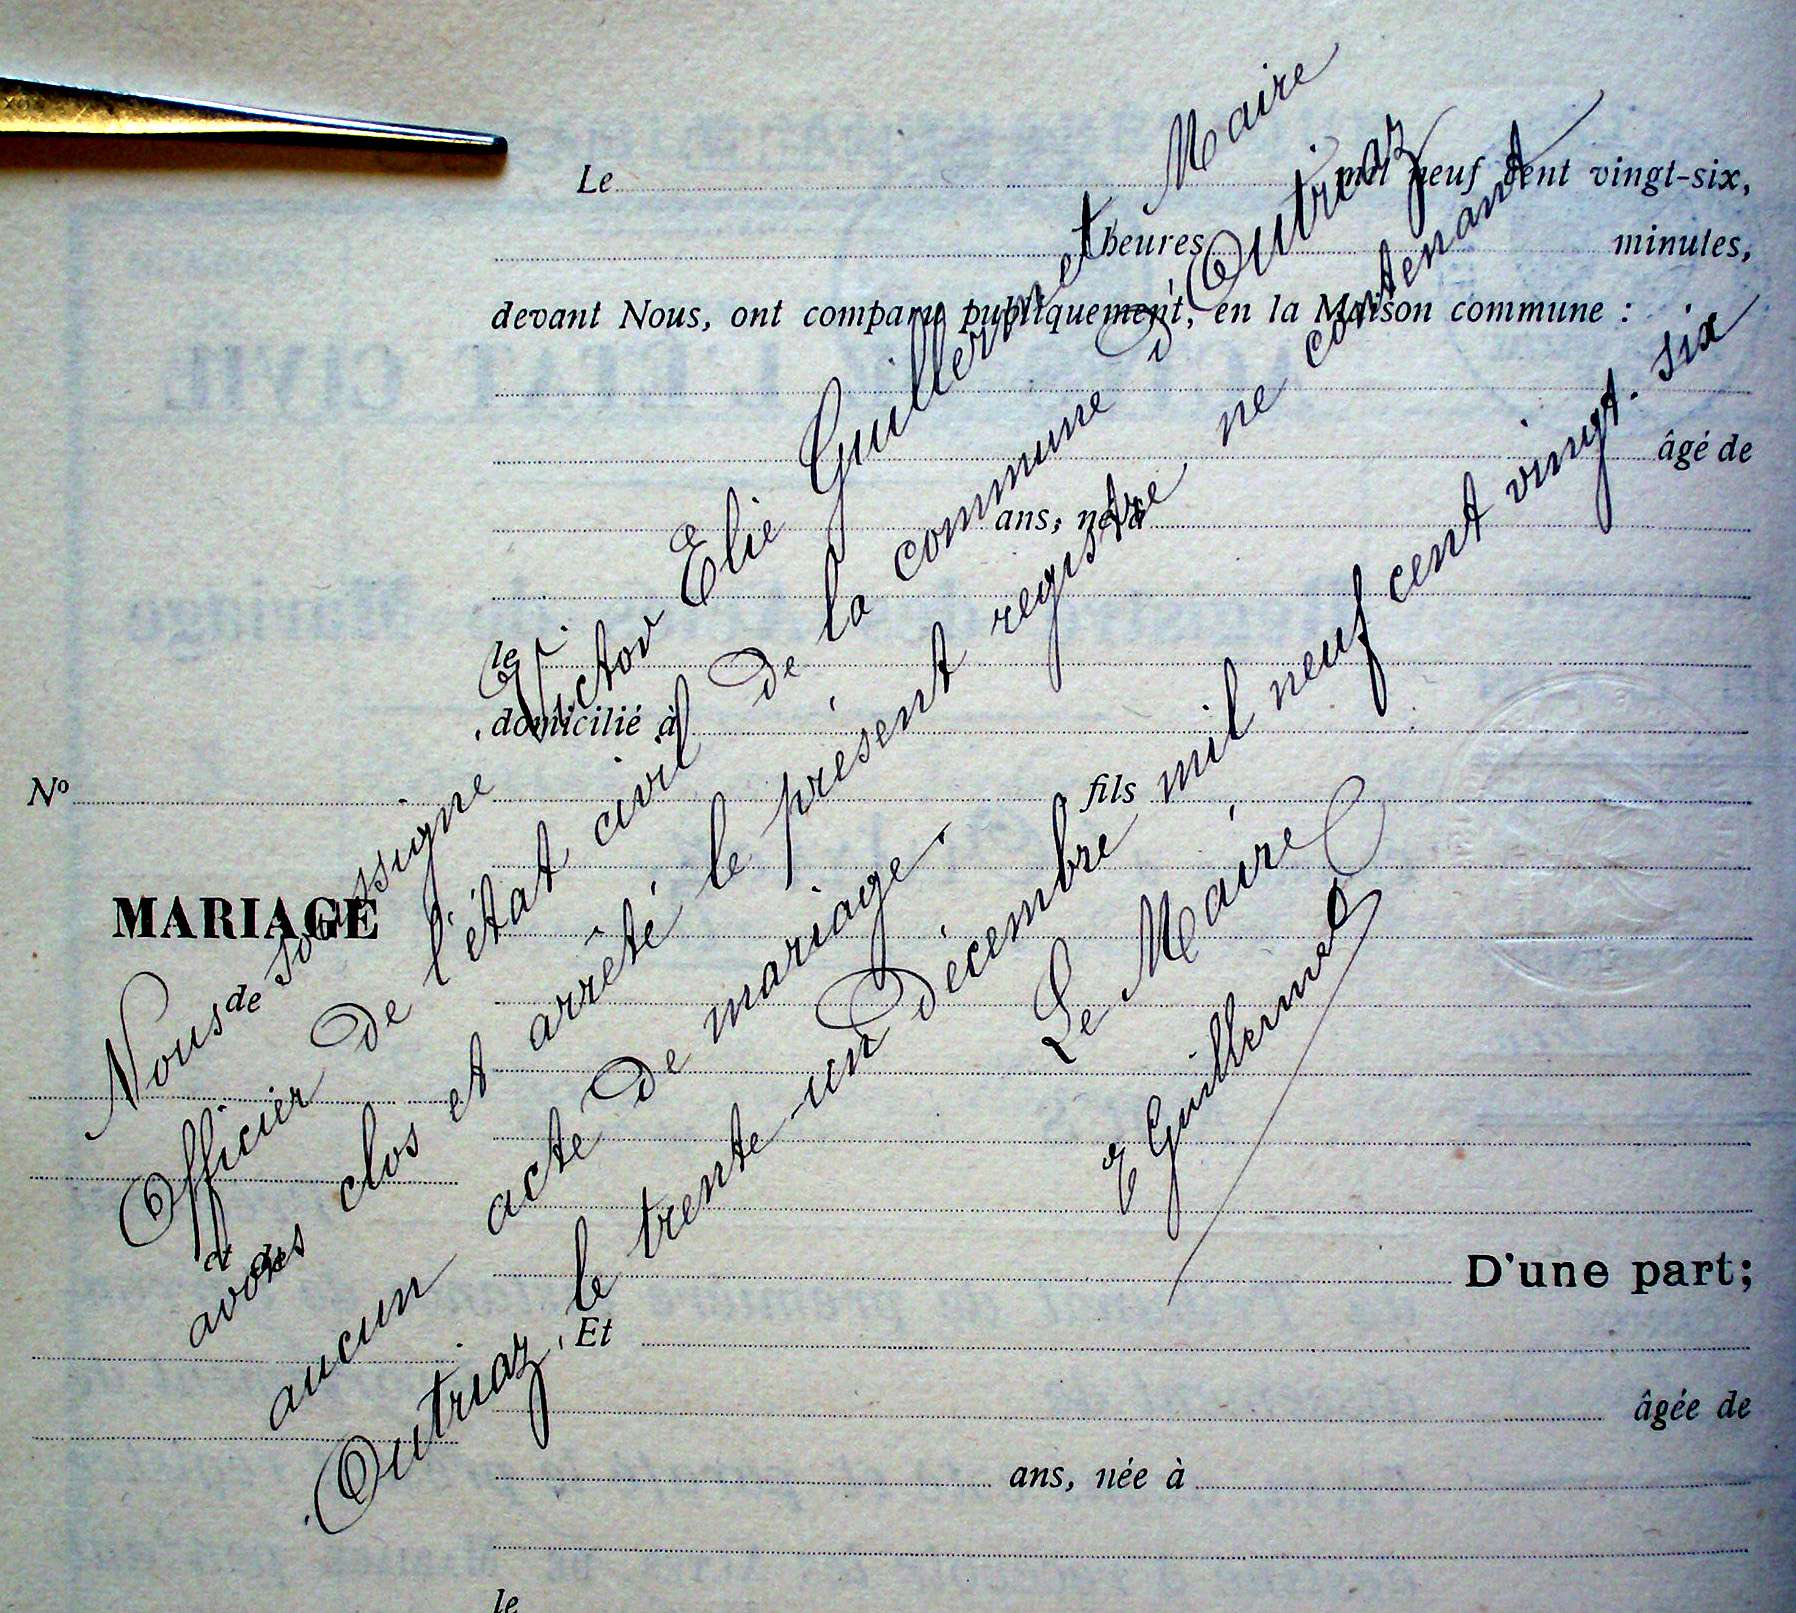 Le mil neuf cent vingt-six,
heures minutes,
devant Nous, ont comparu publiquement, en la Maison commune :
âgé de
ans, né à
le
domicilié à
fils
No
MARIAGE
de
et de
D'une part;
Et
âgée de
ans, née à
le
Nous soussigné Victor Elie Guillermet Maire
Officier de l'état civil de la commune d'Outriaz
avons clos et arrêté le présent registre ne contenant
aucun acte de mariage.
Outriaz, le trente-un Décembre mil neuf cent vingt-six
Le Maire
E Guillermet